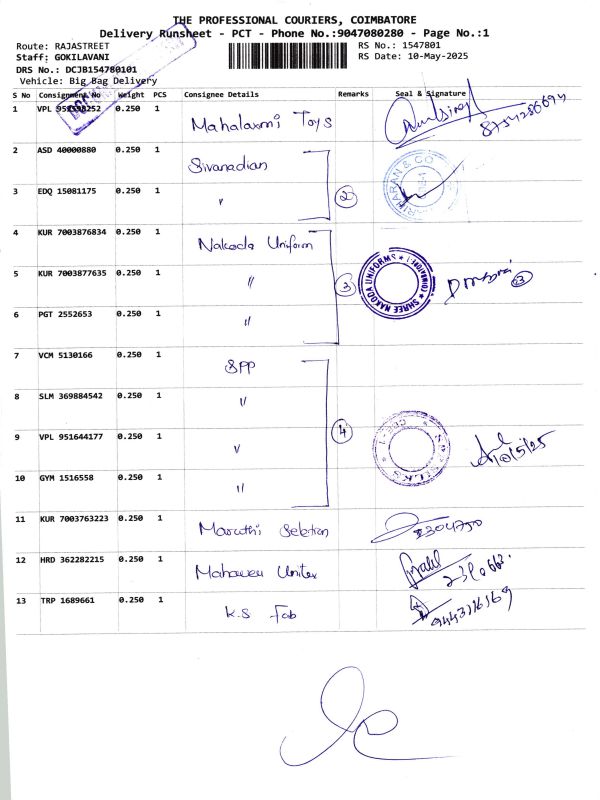 THE PROFESSIONAL COURIERS, COIMBATORE
Delivery Runsheet - PCT - Phone No.:9047080280 - Page No.:1
Route: RAJASTREET RS No.: 1547801
Staff: GOKILAVANI RS Date: 10-May-2025
DRS No.: DCJB154780101
Vehicle: Big Bag Delivery
S No Consignment No Weight PCS Consignee Details Remarks Seal & Signature
1 VPL 0.250 1 Mahalaxmi Toys
2 ASD 40000880 0.250 1 Sivanadian
3 EDQ 15081175 0.250 1 〃 2
4 KUR 7003876834 0.250 1 Nakoda Uniform
5 KUR 7003877635 0.250 1 〃 3 SHREE NAKODA UNIFORMS 3
6 PGT 2552653 0.250 1 〃
7 VCM 5130166 0.250 1 SPP
8 SLM 369884542 0.250 1 〃
9 VPL 951644177 0.250 1 〃 4 CBE-1 10/5/25
10 GYM 1516558 0.250 1 〃
11 KUR 7003763223 0.250 1 Maruthi
12 HRD 362282215 0.250 1 Unitex
13 TRP 1689661 0.250 1 K.S Fab